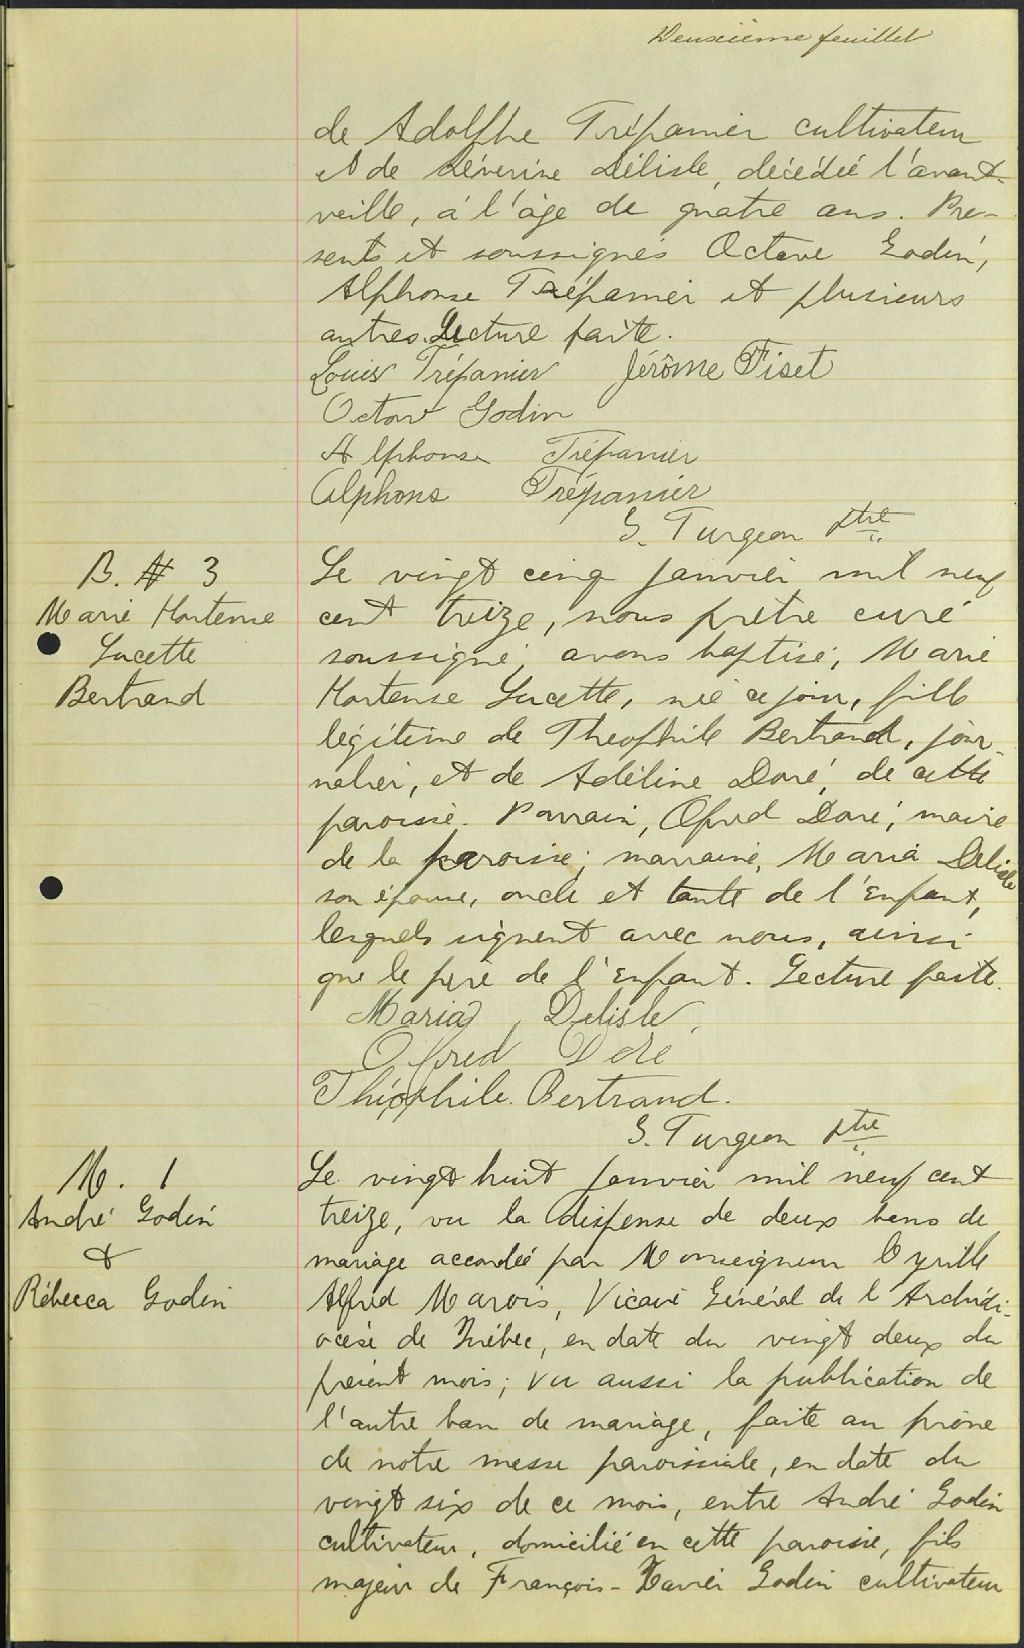 Deuxième feuillet
de Adolphe Trépanier cultivateur
et de Séverine Délisle, décédée l'avant-
veille, à l'âge de quatre ans. Pré-
sents et soussignés Octave Godin,
Alphonse Trépanier et plusieurs
autres. Lecture faite.
Louis Trépanier Jérôme Fiset
Octave Godin
Alphonse Trépanier
Alphons Trépanier
G. Turgeon ptre
B. # 3
Marie Hortense
Lucette
Bertrand
Le vingt cinq janvier mil neuf
cent treize, nous prêtre curé
soussigné, avons baptisé, Marie
Hortense Lucette, née ce jour, fille
légitime de Théophile Bertrand, jour-
nalier, et de Adéline Doré, de cette
paroisse. Parrain, Ofred Doré, maire
de la paroisse; marraine, Maria Delisle
son épouse, oncle et tante de l'enfant,
lesquels signent avec nous, ainsi
que le père de l'enfant. Lecture faite.
Maria Delisle,
Ofred Doré
Théophile Bertrand.
G. Turgeon ptre
M. 1
André Godin
&
Rébecca Godin
Le vingt huit janvier mil neuf cent
treize, vu la dispense de deux bans de
mariage accordée par Monseigneur Cyrille
Alfred Marois, Vicaire Général de l'Archidi-
ocèse de Québec, en date du vingt deux du
présent mois; vu aussi la publication de
l'autre ban de mariage, faite au prône
de notre messe paroissiale, en date du
vingt six de ce mois, entre André Godin
cultivateur, domicilié en cette paroisse, fils
majeur de François-Xavier Godin cultivateur